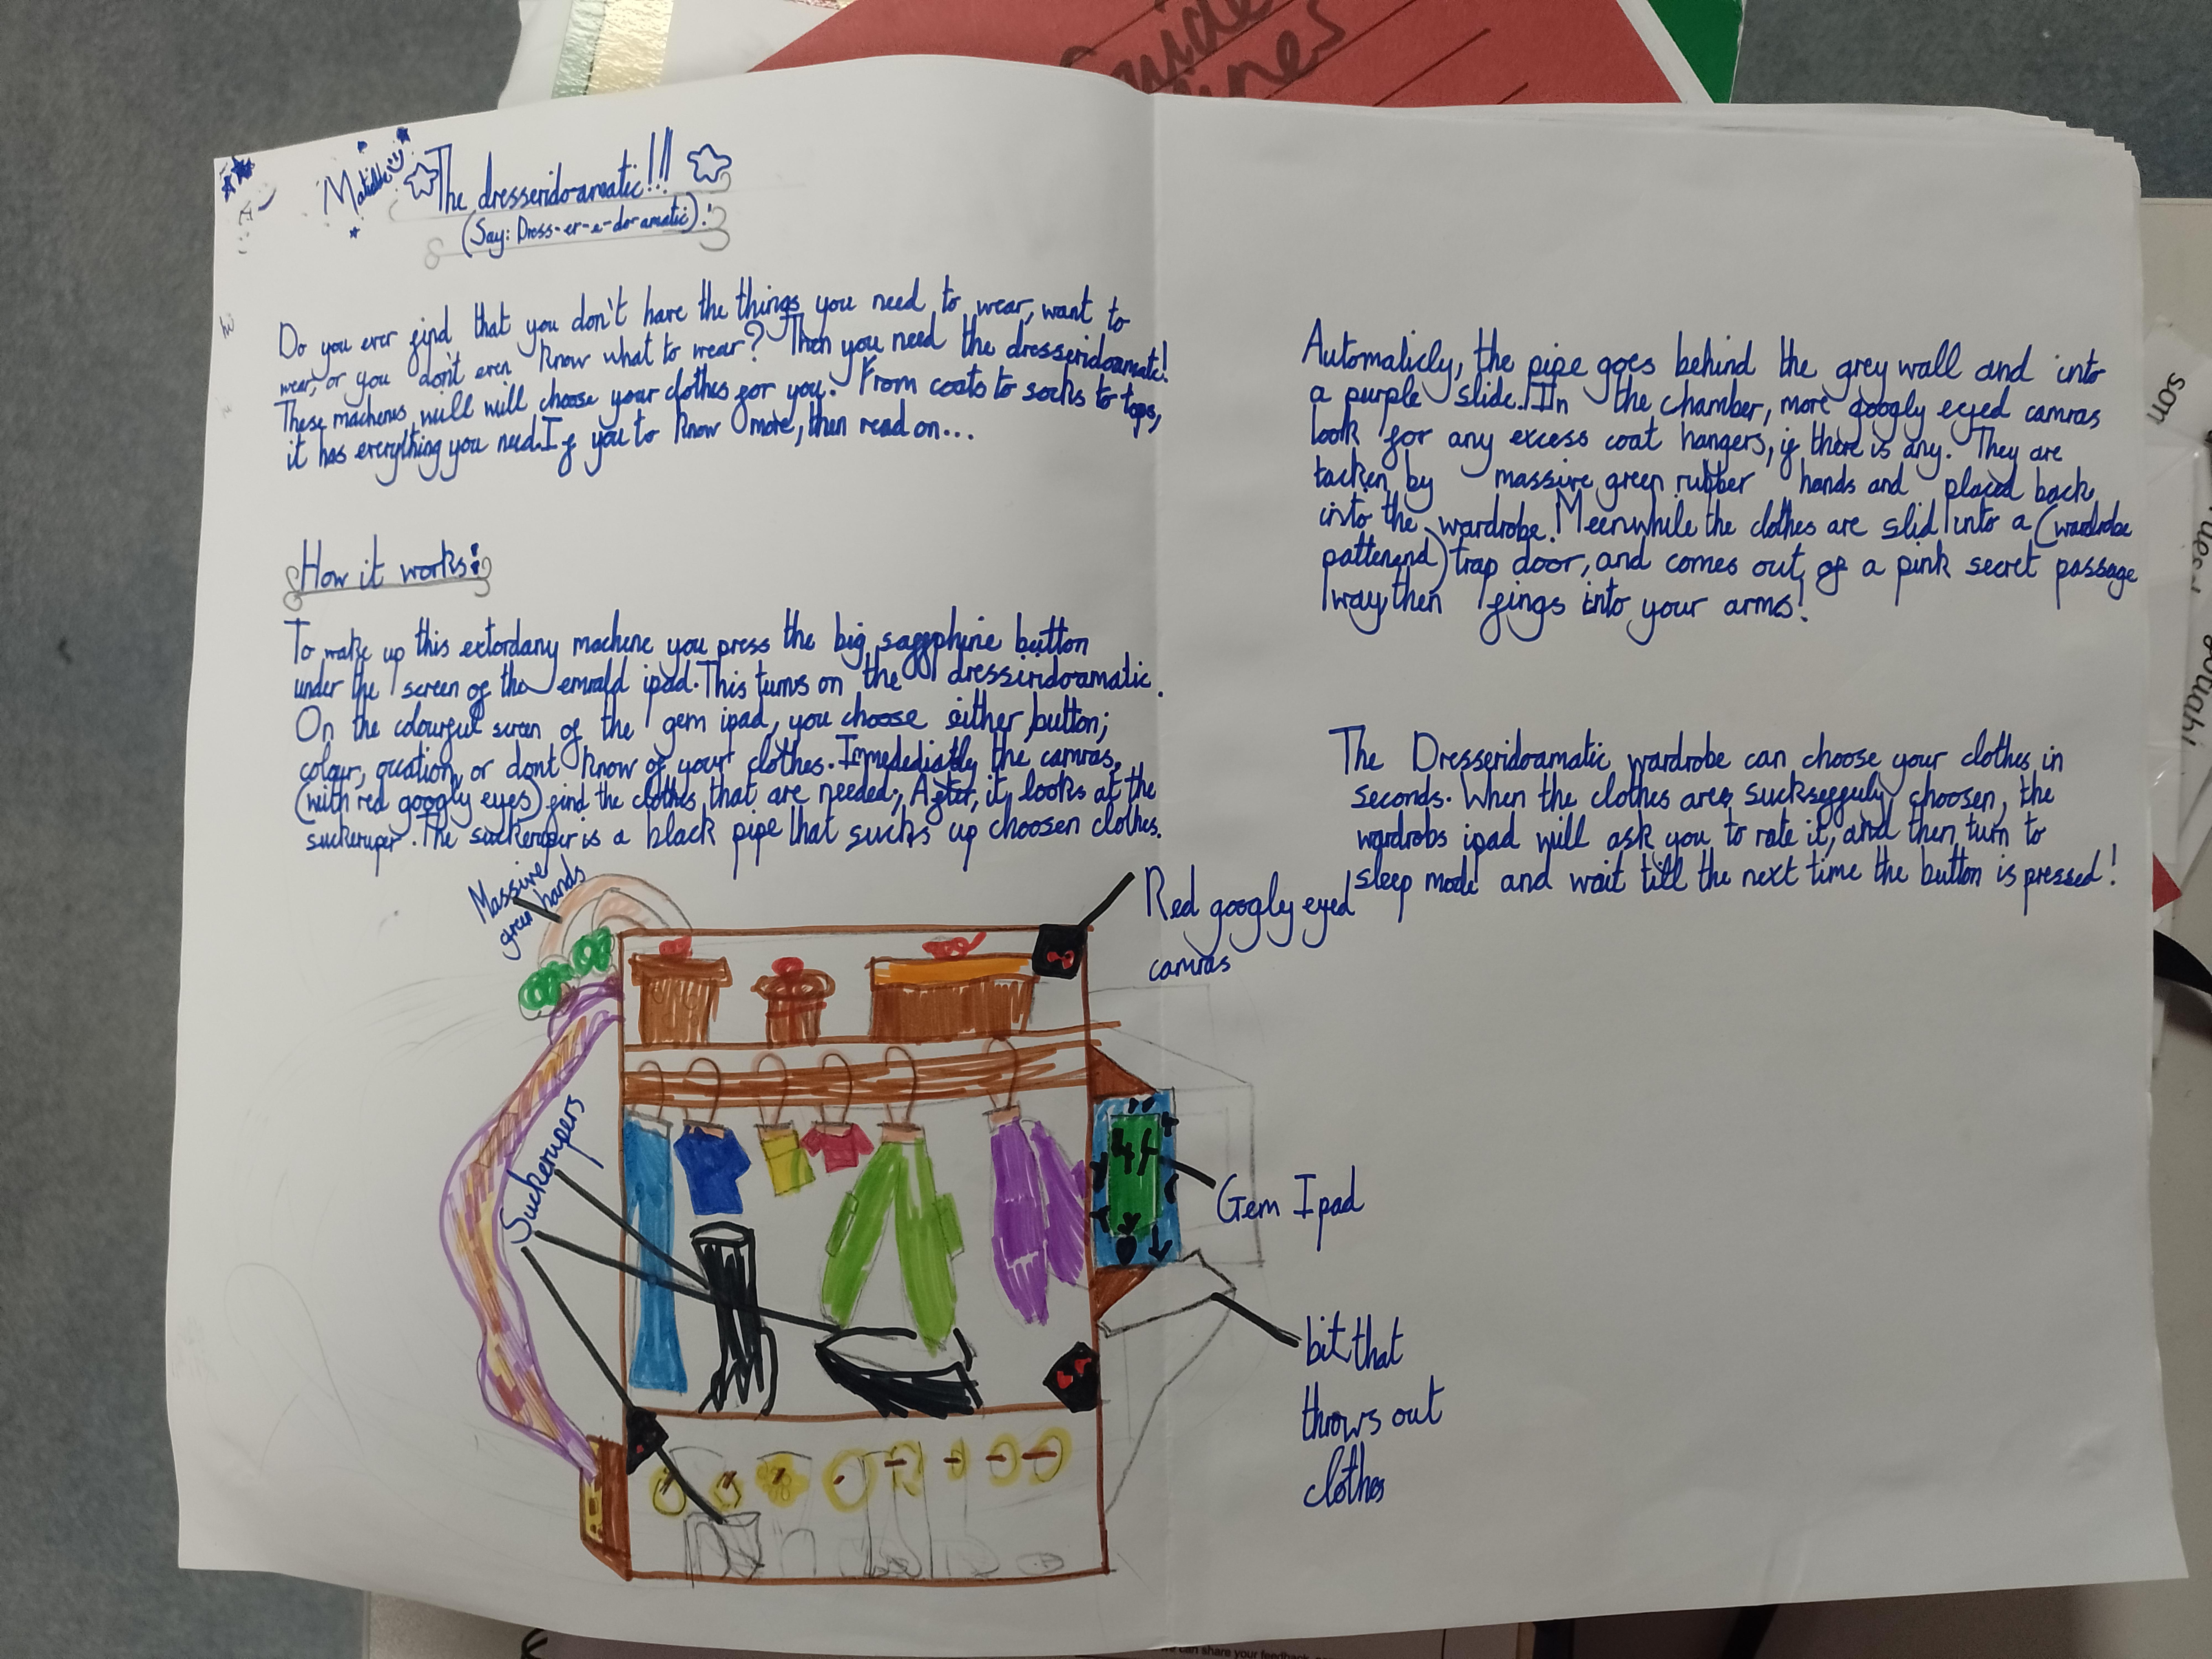 Guide
lines
Matilda
The dresserido-amatic!!!
(Say: Dress-er-e-do-amatic).!
hi
Do you ever find that you don't have the things you need to wear, want to
wear, or you don't even know what to wear? Then you need the dresseridoamatic!
These machenes will will choose your clothes for you. From coats to socks to tops,
it has everything you need. If you to know more, then read on...
How it works:
To wake up this extordany machene you press the big sappphine button
under the screen of the emrald ipad. This turns on the dresserido-amatic.
On the colourful screen of the gem ipad, you choose either button;
colour, or dont know of your clothes. Immedediatly the camras,
(with red googly eyes) find the clothes that are needed; After, it looks at the
suckeruper. The suckeruper is a black pipe that sucks up choosen clothes.
Automaticly, the pipe goes behind the grey wall and into
a purple slide. In the chamber, more googly eyed camras
look for any excess coat hangers, if there is any. They are
tacken by massive green rubber hands and placed back
into the wardrobe. Meenwhile the clothes are slid into a (wardrobe
pattenend) trap door, and comes out of a pink secret passage
way, then fings into your arms!
The Dresseridoamatic wardrobe can choose your clothes in
seconds. When the clothes are suckseffuly choosen, the
wardrobs ipad will ask you to rate it, and then turn to
sleep mode and wait till the next time the button is pressed!
Massive
green hands
Red googly eyed
camras
Suckerupers
Gem Ipad
bit that
throws out
clothes
son
can share your feedback